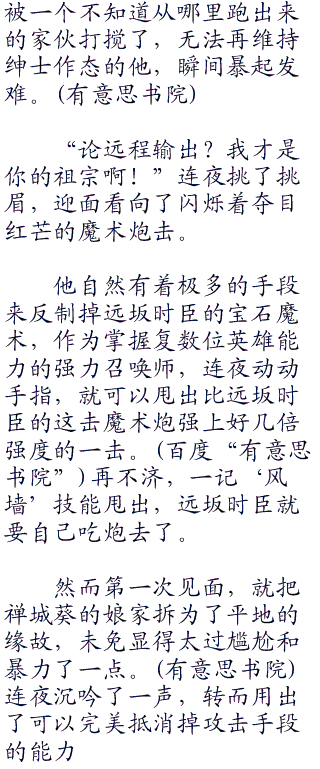 被一个不知道从哪里跑出来
的家伙打搅了，无法再维持
绅士作态的他，瞬间暴起发
难。(有意思书院)
“论远程输出？我才是
你的祖宗啊！”连夜挑了挑
眉，迎面看向了闪烁着夺目
红芒的魔术炮击。
他自然有着极多的手段
来反制掉远坂时臣的宝石魔
术，作为掌握复数位英雄能
力的强力召唤师，连夜动动
手指，就可以甩出比远坂时
臣的这击魔术炮强上好几倍
强度的一击。(百度“有意思
书院”)再不济，一记‘风
墙’技能甩出，远坂时臣就
要自己吃炮去了。
然而第一次见面，就把
禅城葵的娘家拆为了平地的
缘故，未免显得太过尴尬和
暴力了一点。(有意思书院)
连夜沉吟了一声，转而用出
了可以完美抵消掉攻击手段
的能力